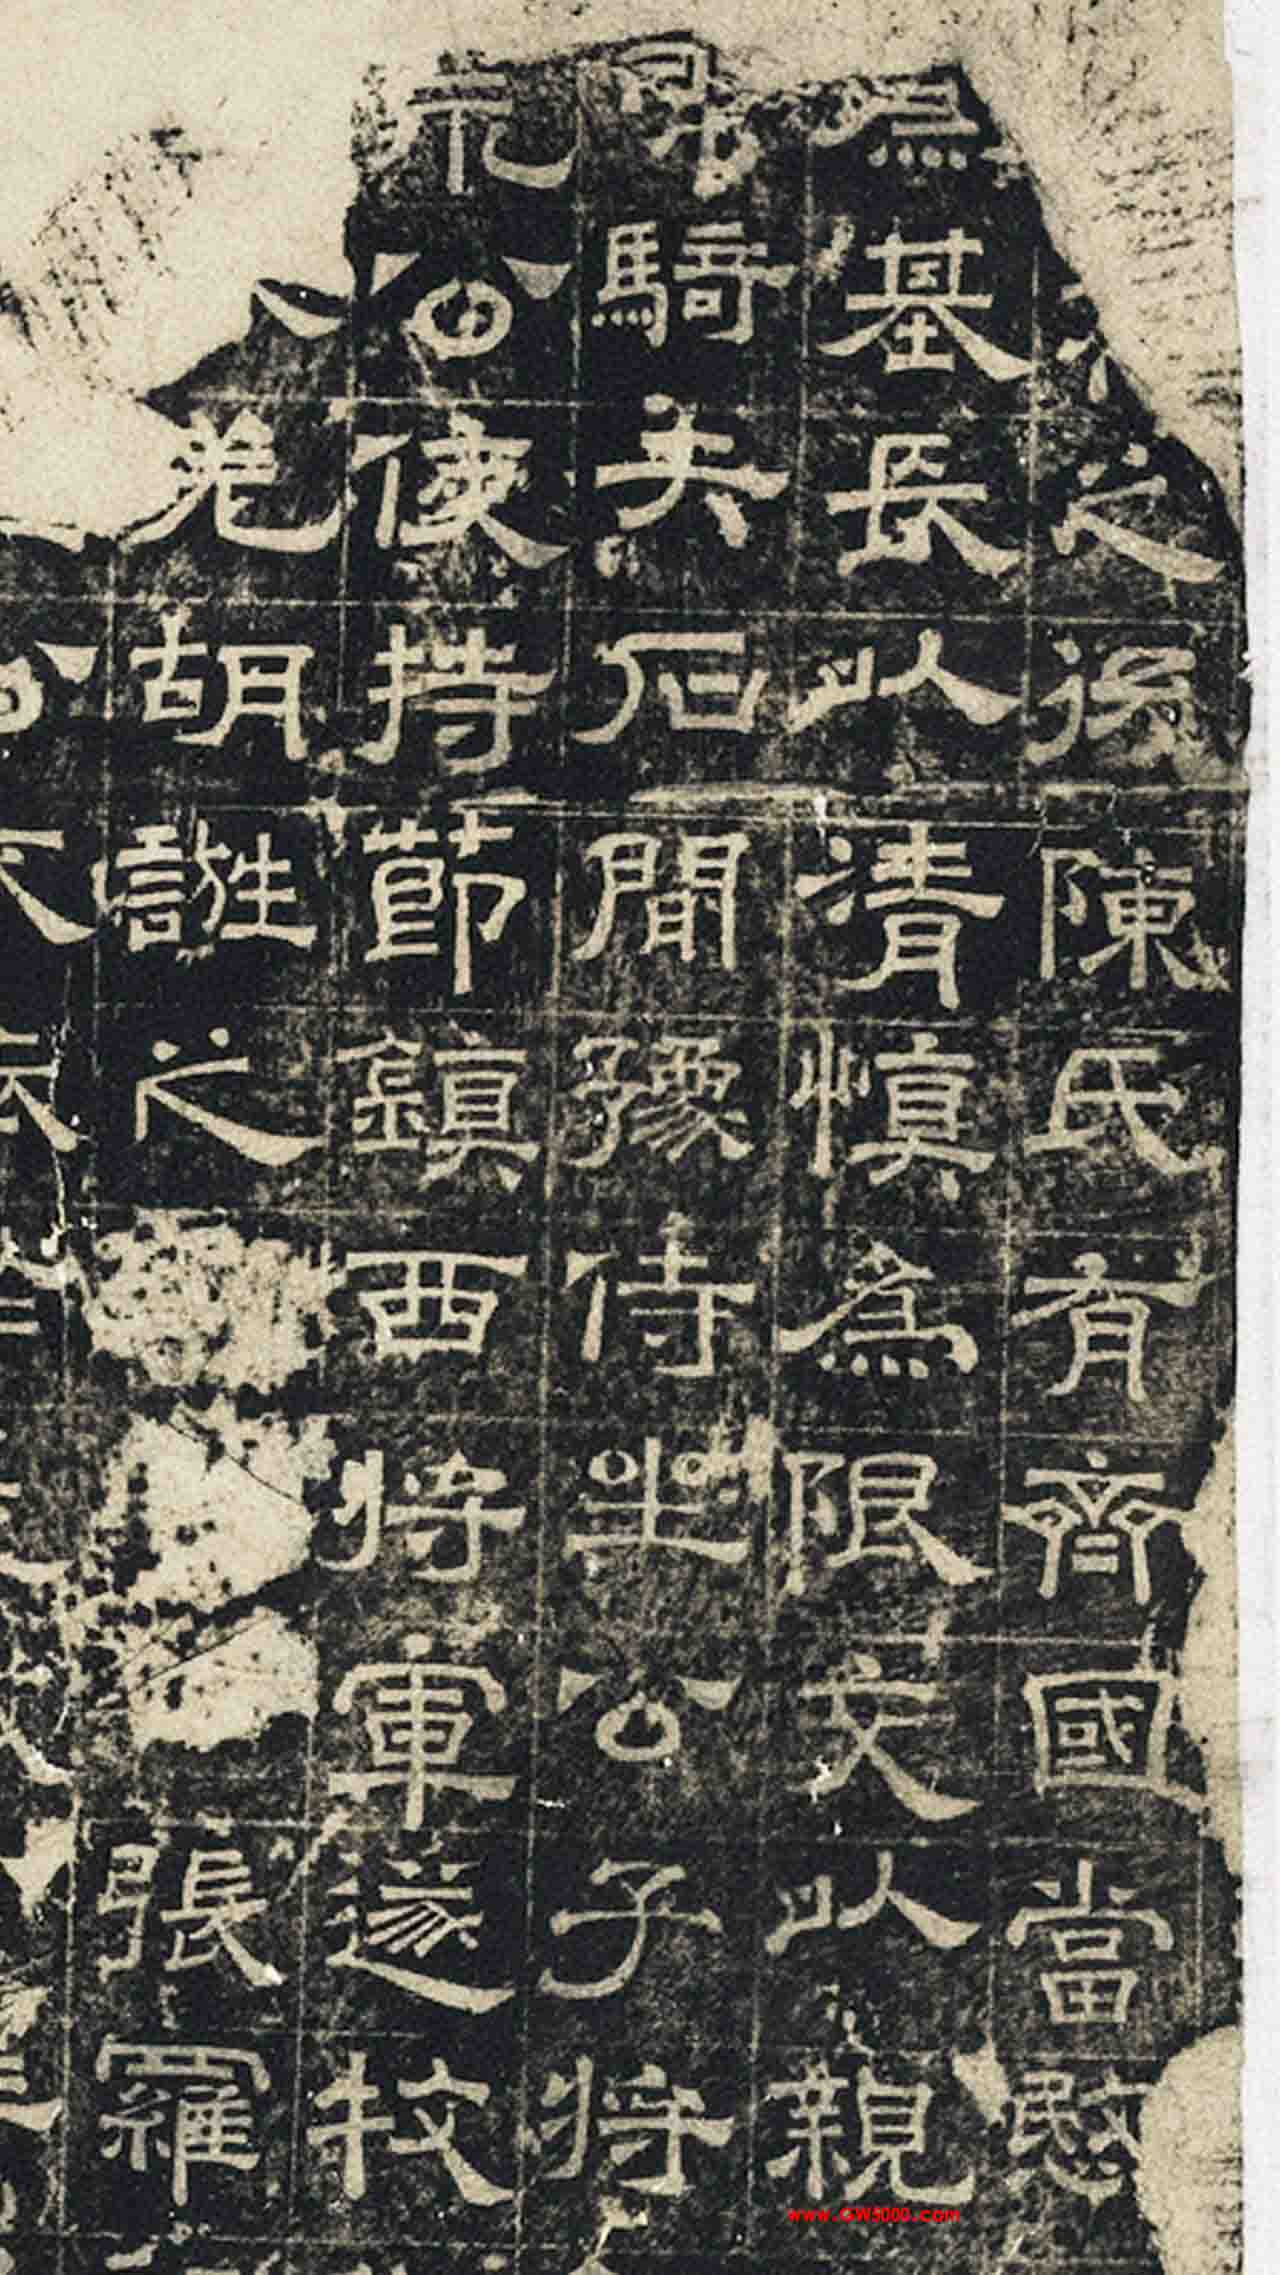 之後陳氏有齊國當愍
基長以清慎為限交以親
騎夫石閒豫侍坐公子將
公使持節鎮西將軍遂牧
羌胡誑之張羅
www.GW5000.com